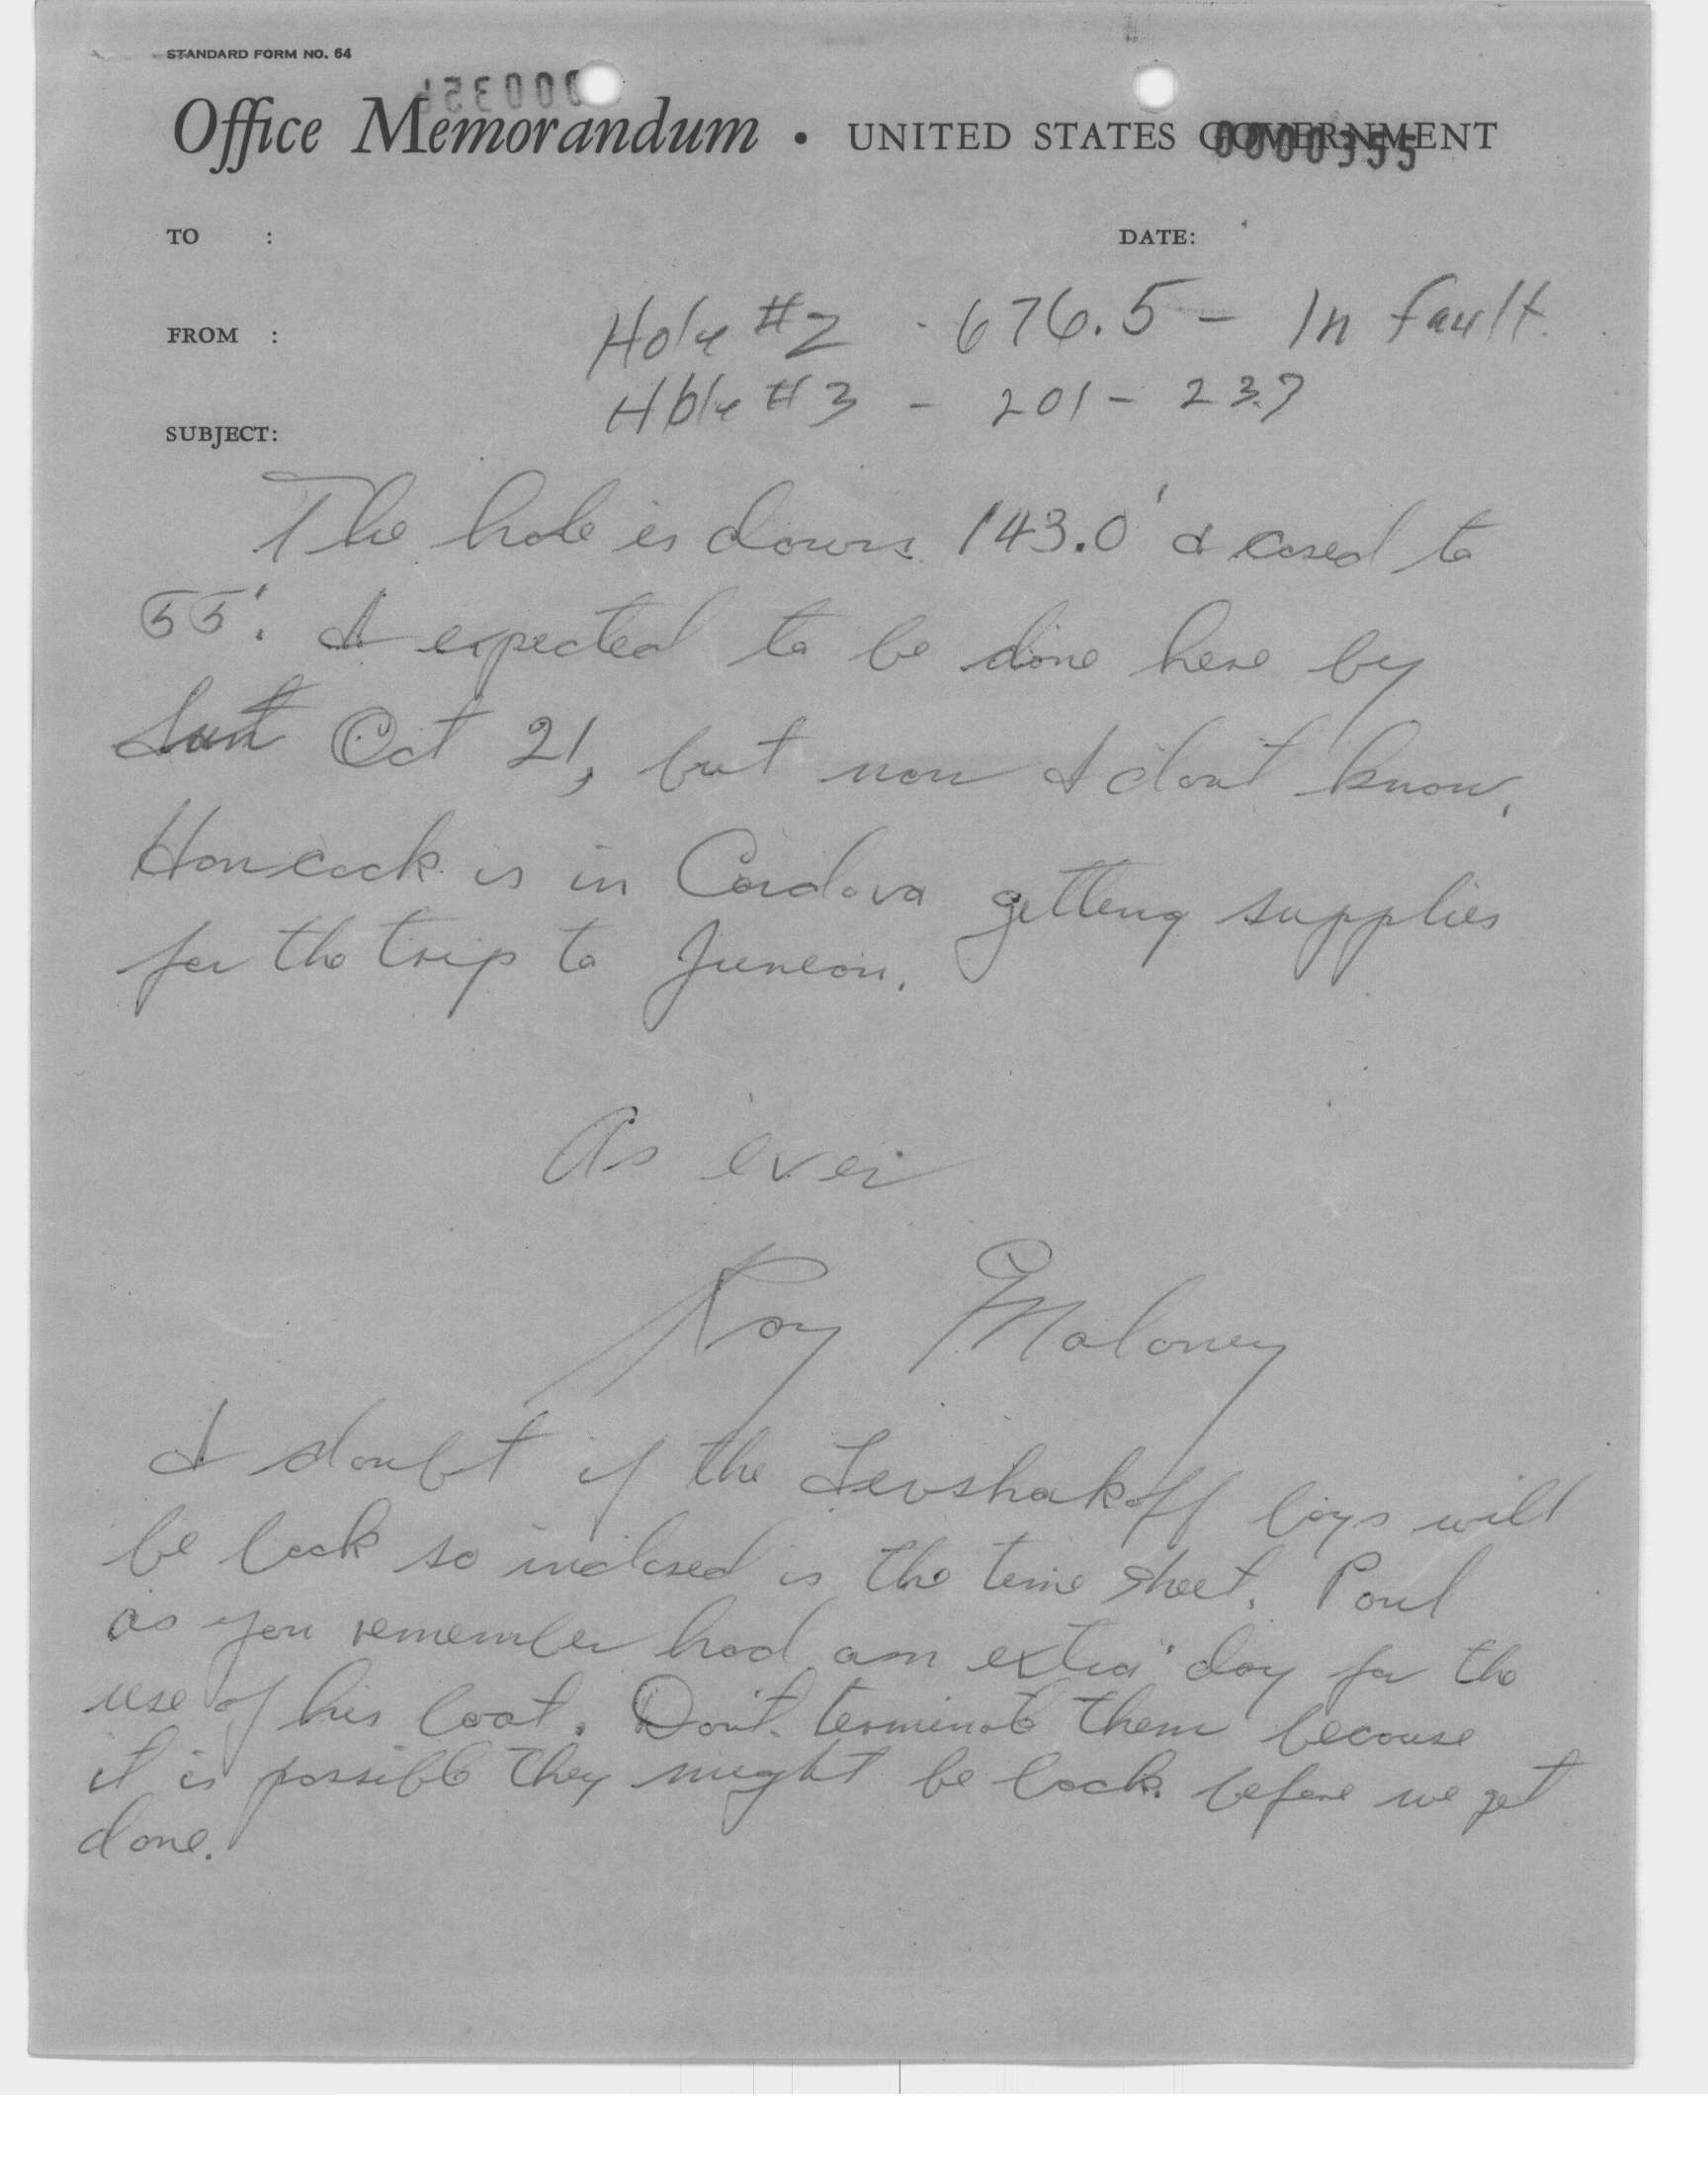 STANDARD FORM NO. 64
Office Memorandum • UNITED STATES GOVERNMENT
0000355
TO :
DATE:
FROM :
Hole #2 - 676.5 - In fault.
Hole #3 - 201 - 237
SUBJECT:
The hole is down 143.0' & cased to
55'. I expected to be done here by
Oct 21, but now I don't know.
Hancock is in Cordova getting supplies
for the trip to Juneau.
As ever
Roy Maloney
I doubt if the Levshakoff boys will
be back so inclosed is the time sheet. Paul
as you remember had an extra day for the
use of his boat. Don't terminate them because
it is possible they might be back before we get
done.